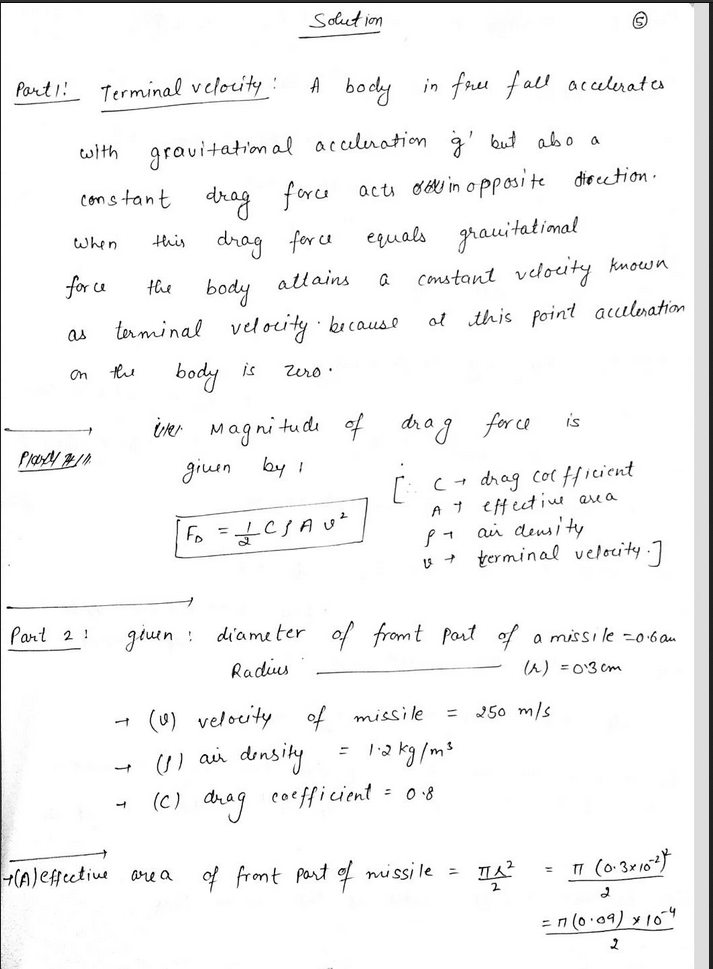 Solution
⑤
Part 1: Terminal velocity: A body in free fall accelerates
with gravitational acceleration 'g' but also a
constant drag force acts in opposite direction.
When this drag force equals gravitational
force the body attains a constant velocity known
as terminal velocity. because at this point acceleration
on the body is zero.
Magnitude of drag force is
given by :
F_D = 1/2 C ρ A v²
[ C → drag coefficient
A → effective area
ρ → air density
v → terminal velocity.]
Part 2: given : diameter of front part of a missile = 0.6 cm
Radius (r) = 0.3 cm
→ (v) velocity of missile = 250 m/s
→ (ρ) air density = 1.2 kg/m³
→ (C) drag coefficient = 0.8
→ (A) effective area of front part of missile = πr²/2 = π (0.3×10⁻²)²/2
= π(0.09) × 10⁻⁴/2